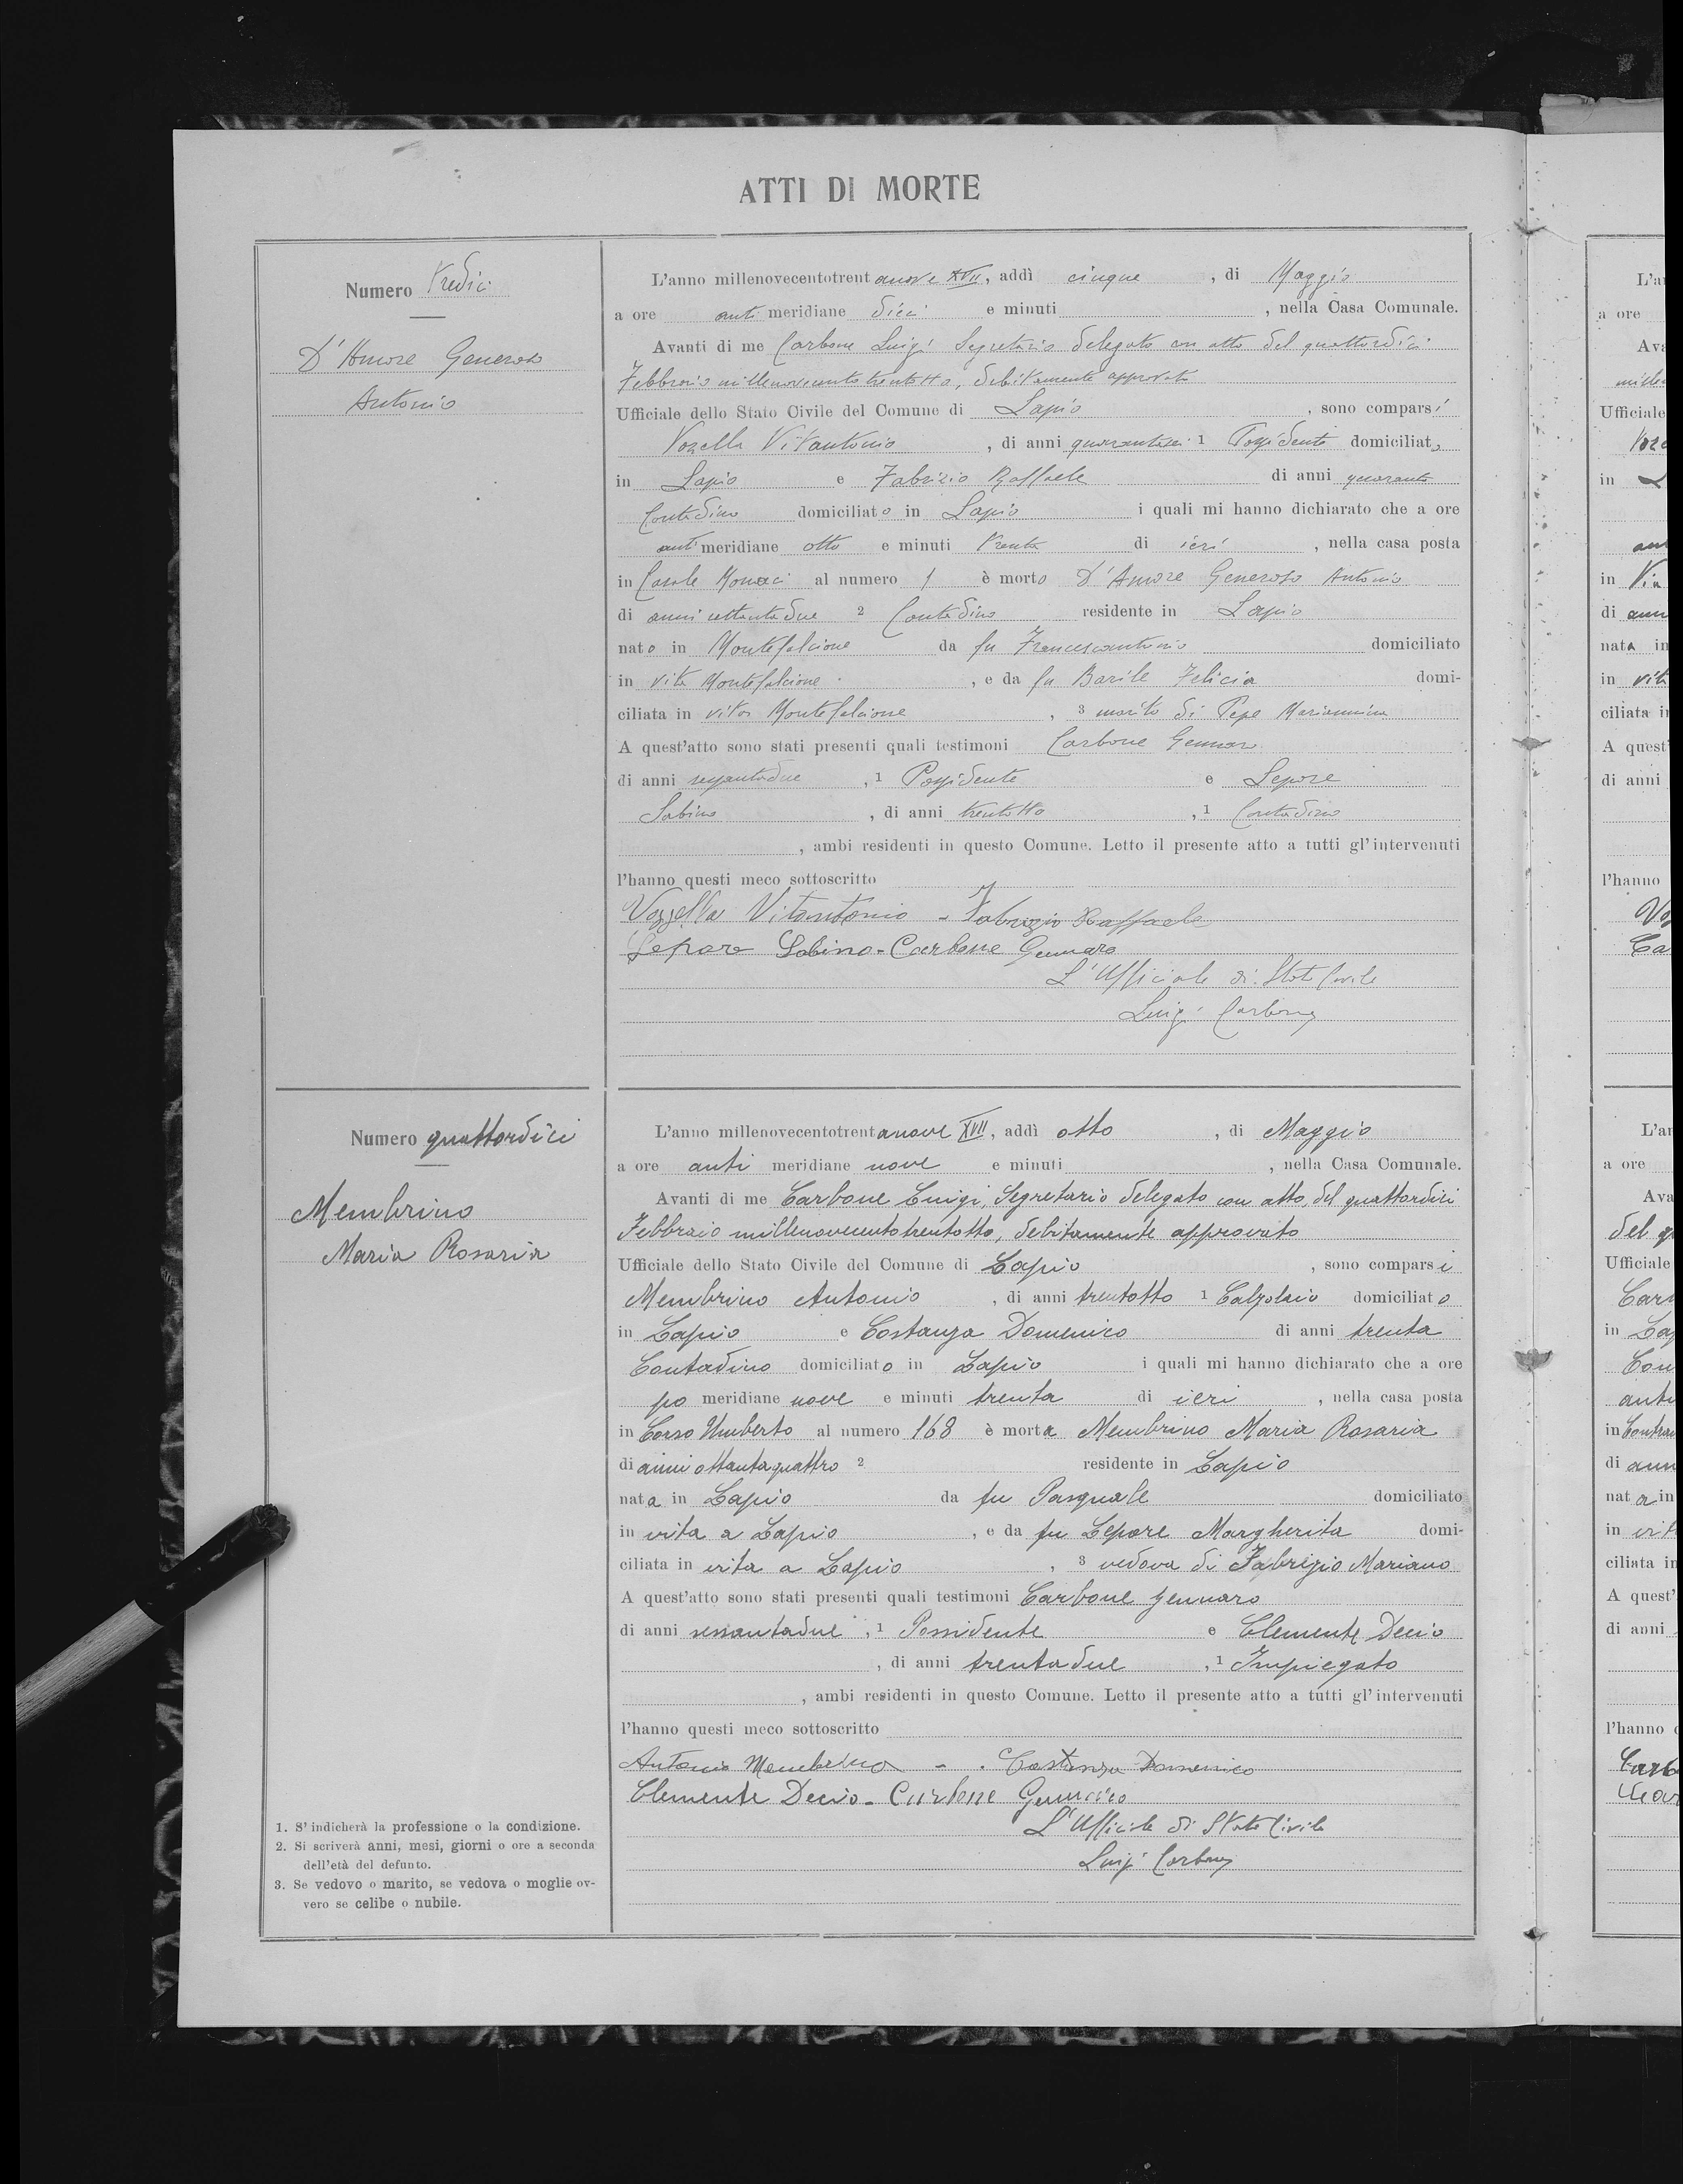 ATTI DI MORTE
Numero Tredici
D'Amore Generoso
Antonio
L'anno millenovecentotrentanove XVII, addì cinque, di Maggio
a ore anti meridiane dieci e minuti, nella Casa Comunale.
Avanti di me Carbone Luigi Segretario delegato con atto del quattordici
Febbraio millenovecentotrentotto, debitamente approvato
Ufficiale dello Stato Civile del Comune di Lapio, sono comparsi
Vozella Vitantonio, di anni quarantasei 1 Possidente domiciliato
in Lapio e Fabrizio Raffaele di anni quaranta
Contadino domiciliato in Lapio i quali mi hanno dichiarato che a ore
anti meridiane otto e minuti trenta di ieri, nella casa posta
in Casale Monaci al numero 1 è morto D'Amore Generoso Antonio
di anni settantadue 2 Contadino residente in Lapio
nato in Montefalcione da fu Francescantonio domiciliato
in vita Montefalcione, e da fu Barile Felicia domi-
ciliata in vita Montefalcione, 3 marito di Pepe Mariannina
A quest'atto sono stati presenti quali testimoni Carbone Gennaro
di anni sessantadue, 1 Possidente e Lepore
Sabino, di anni trentotto, 1 Contadino
, ambi residenti in questo Comune. Letto il presente atto a tutti gl'intervenuti
l'hanno questi meco sottoscritto
Vozzella Vitantonio - Fabrizio Raffaele
Lepore Sabino - Carbone Gennaro
L'Ufficiale di Stato Civile
Luigi Carbone
Numero quattordici
Membrino
Maria Rosaria
L'anno millenovecentotrentanove XVII, addì otto, di Maggio
a ore anti meridiane nove e minuti, nella Casa Comunale.
Avanti di me Carbone Luigi, Segretario delegato con atto del quattordici
Febbraio millenovecentotrentotto, debitamente approvato
Ufficiale dello Stato Civile del Comune di Lapio, sono comparsi
Membrino Antonio, di anni trentotto 1 Calzolaio domiciliato
in Lapio e Costanza Domenico di anni trenta
Contadino domiciliato in Lapio i quali mi hanno dichiarato che a ore
po meridiane nove e minuti trenta di ieri, nella casa posta
in Corso Umberto al numero 168 è morta Membrino Maria Rosaria
di anni ottantaquattro 2 residente in Lapio
nata in Lapio da fu Pasquale domiciliato
in vita a Lapio, e da fu Lepore Margherita domi-
ciliata in vita a Lapio, 3 vedova di Fabrizio Mariano
A quest'atto sono stati presenti quali testimoni Carbone Gennaro
di anni sessantadue, 1 Possidente e Clemente Decio
, di anni trentadue, 1 Impiegato
, ambi residenti in questo Comune. Letto il presente atto a tutti gl'intervenuti
l'hanno questi meco sottoscritto
Antonio Membrino - Costanza Domenico
Clemente Decio - Carbone Gennaro
L'Ufficiale di Stato Civile
Luigi Carbone
1. S'indicherà la professione o la condizione.
2. Si scriverà anni, mesi, giorni o ore a seconda
dell'età del defunto.
3. Se vedovo o marito, se vedova o moglie ov-
vero se celibe o nubile.